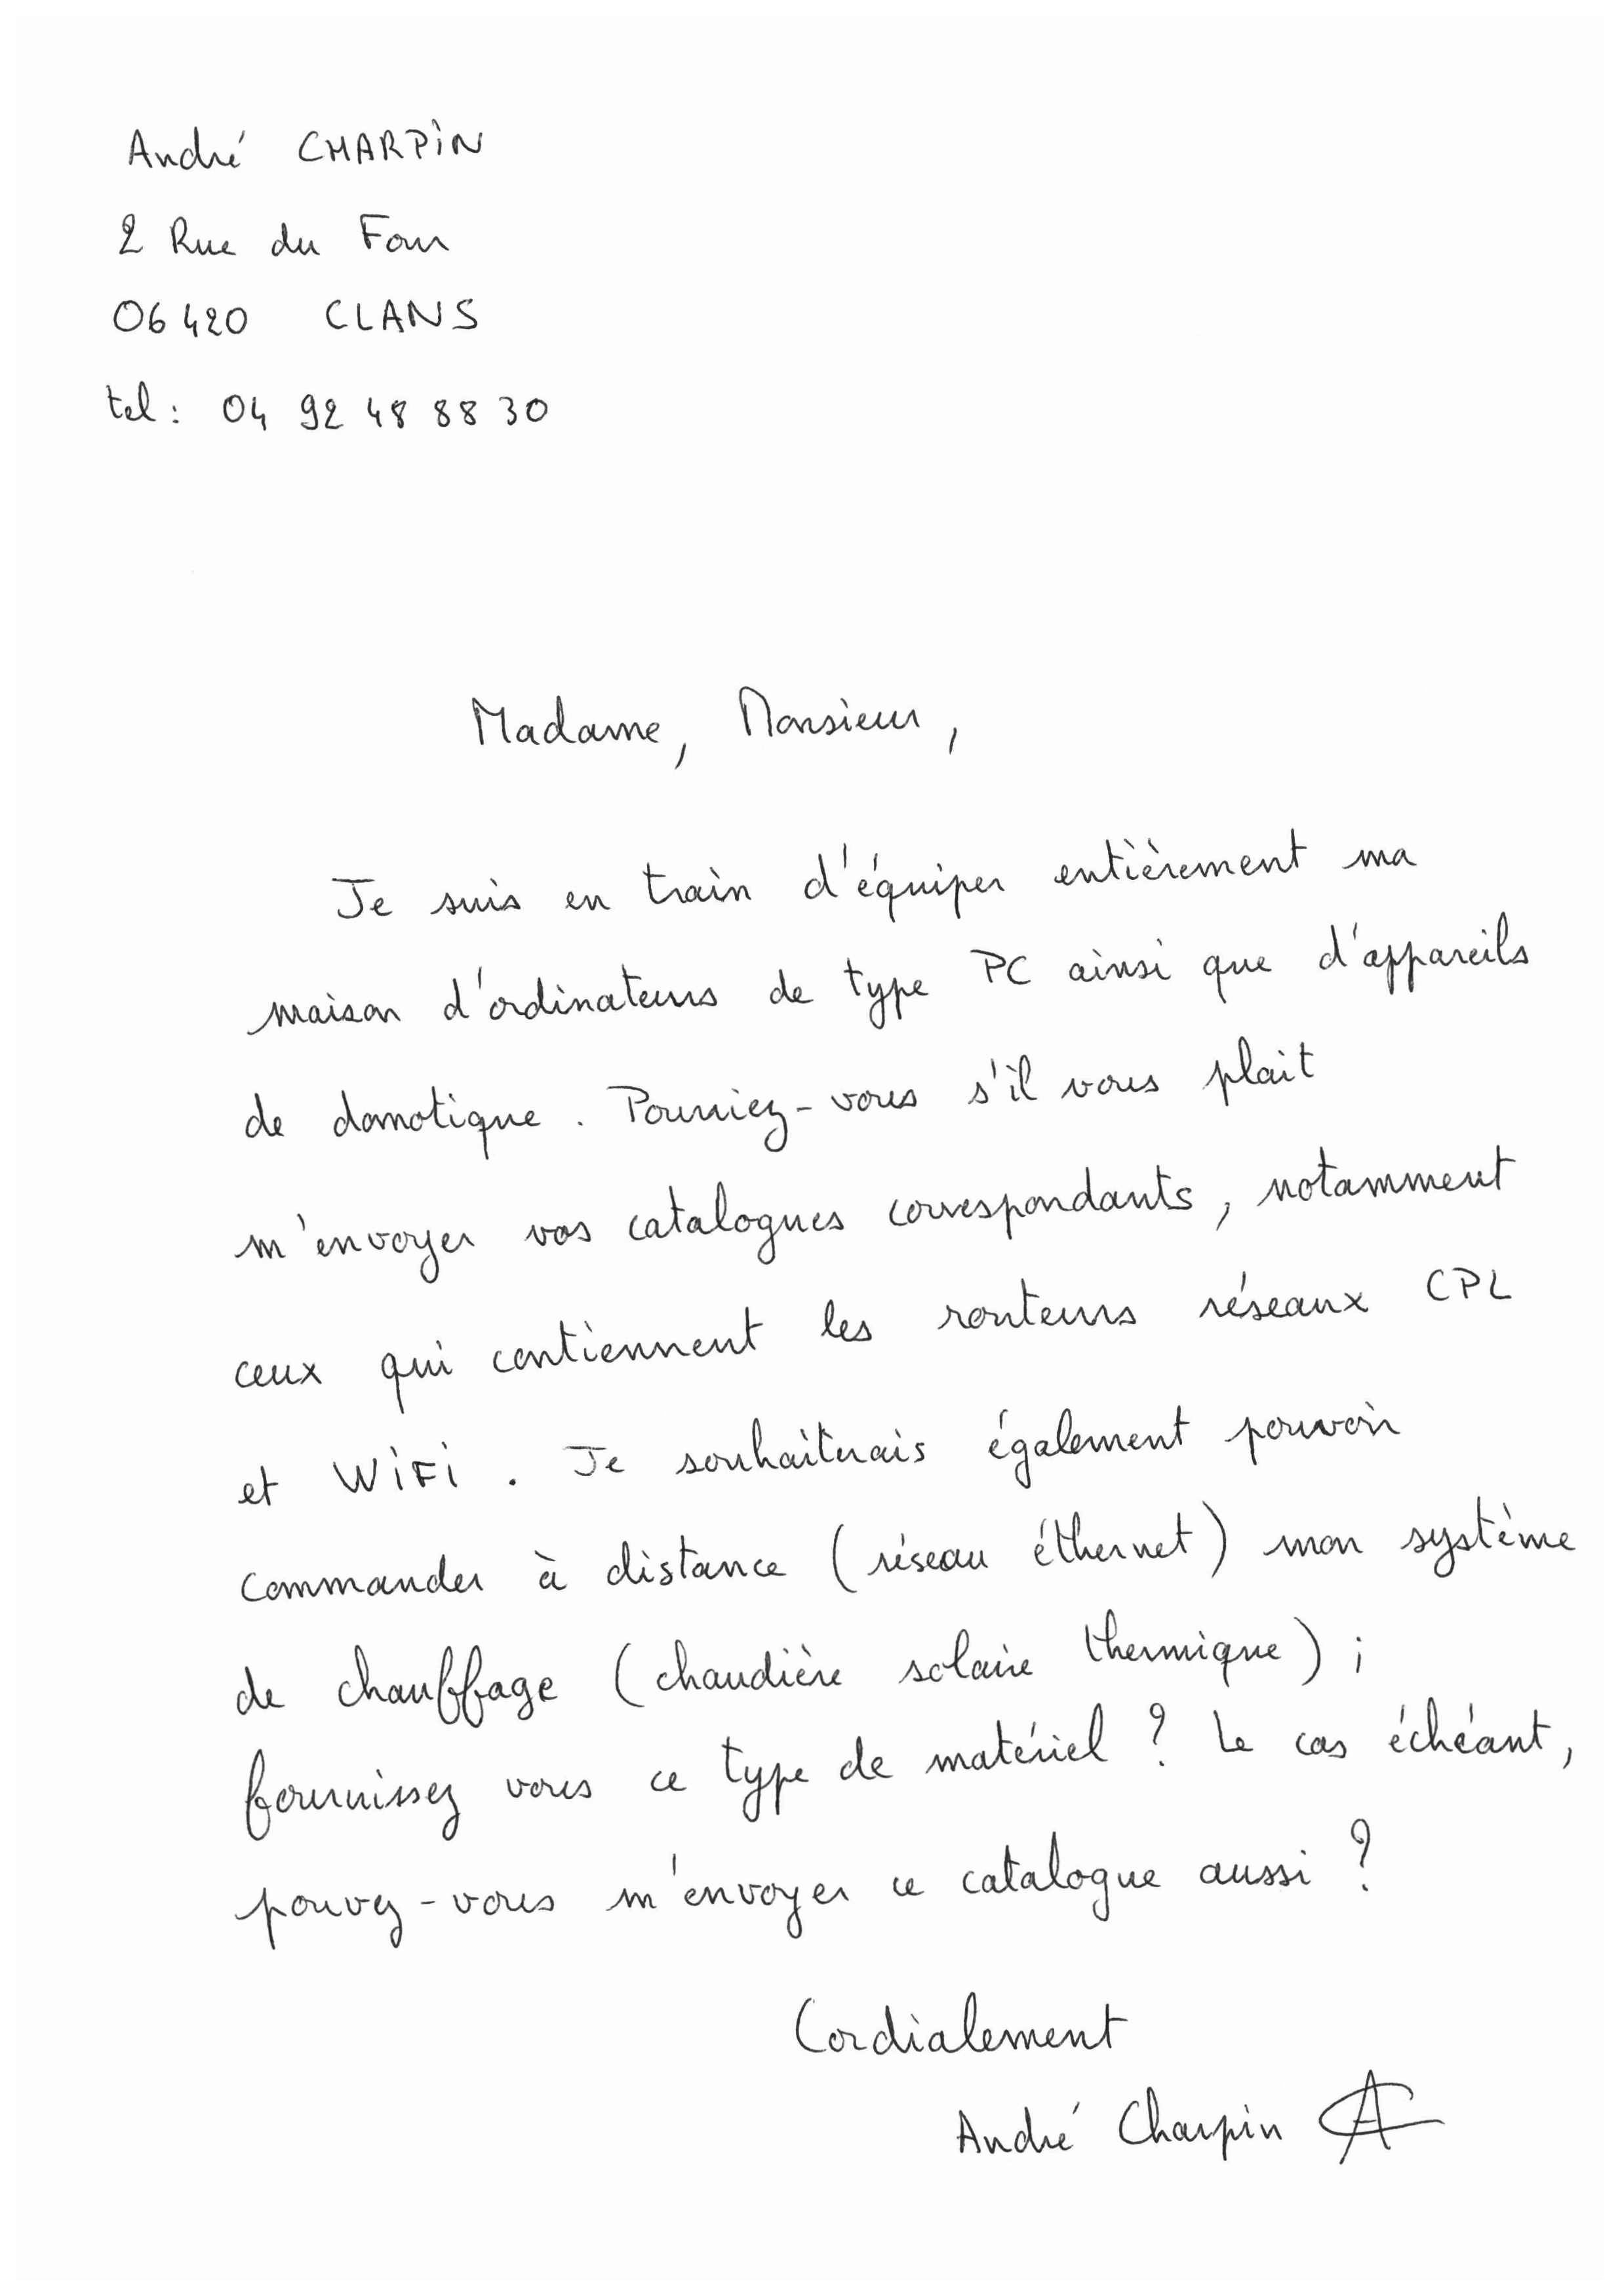 André CHARPIN
2 Rue du Four
06420 CLANS
tel: 04 92 48 88 30
Madame, Monsieur,
Je suis en train d'équiper entièrement ma
maison d'ordinateurs de type PC ainsi que d'appareils
de domotique. Pourriez-vous s'il vous plait
m'envoyer vos catalogues correspondants, notamment
ceux qui contiennent les routeurs réseaux CPL
et WiFi. Je souhaiterais également pouvoir
commander à distance (réseau éthernet) mon système
de chauffage (chaudière solaire thermique) ;
fournissez vous ce type de matériel ? Le cas échéant,
pouvez-vous m'envoyer ce catalogue aussi ?
Cordialement
André Charpin AC